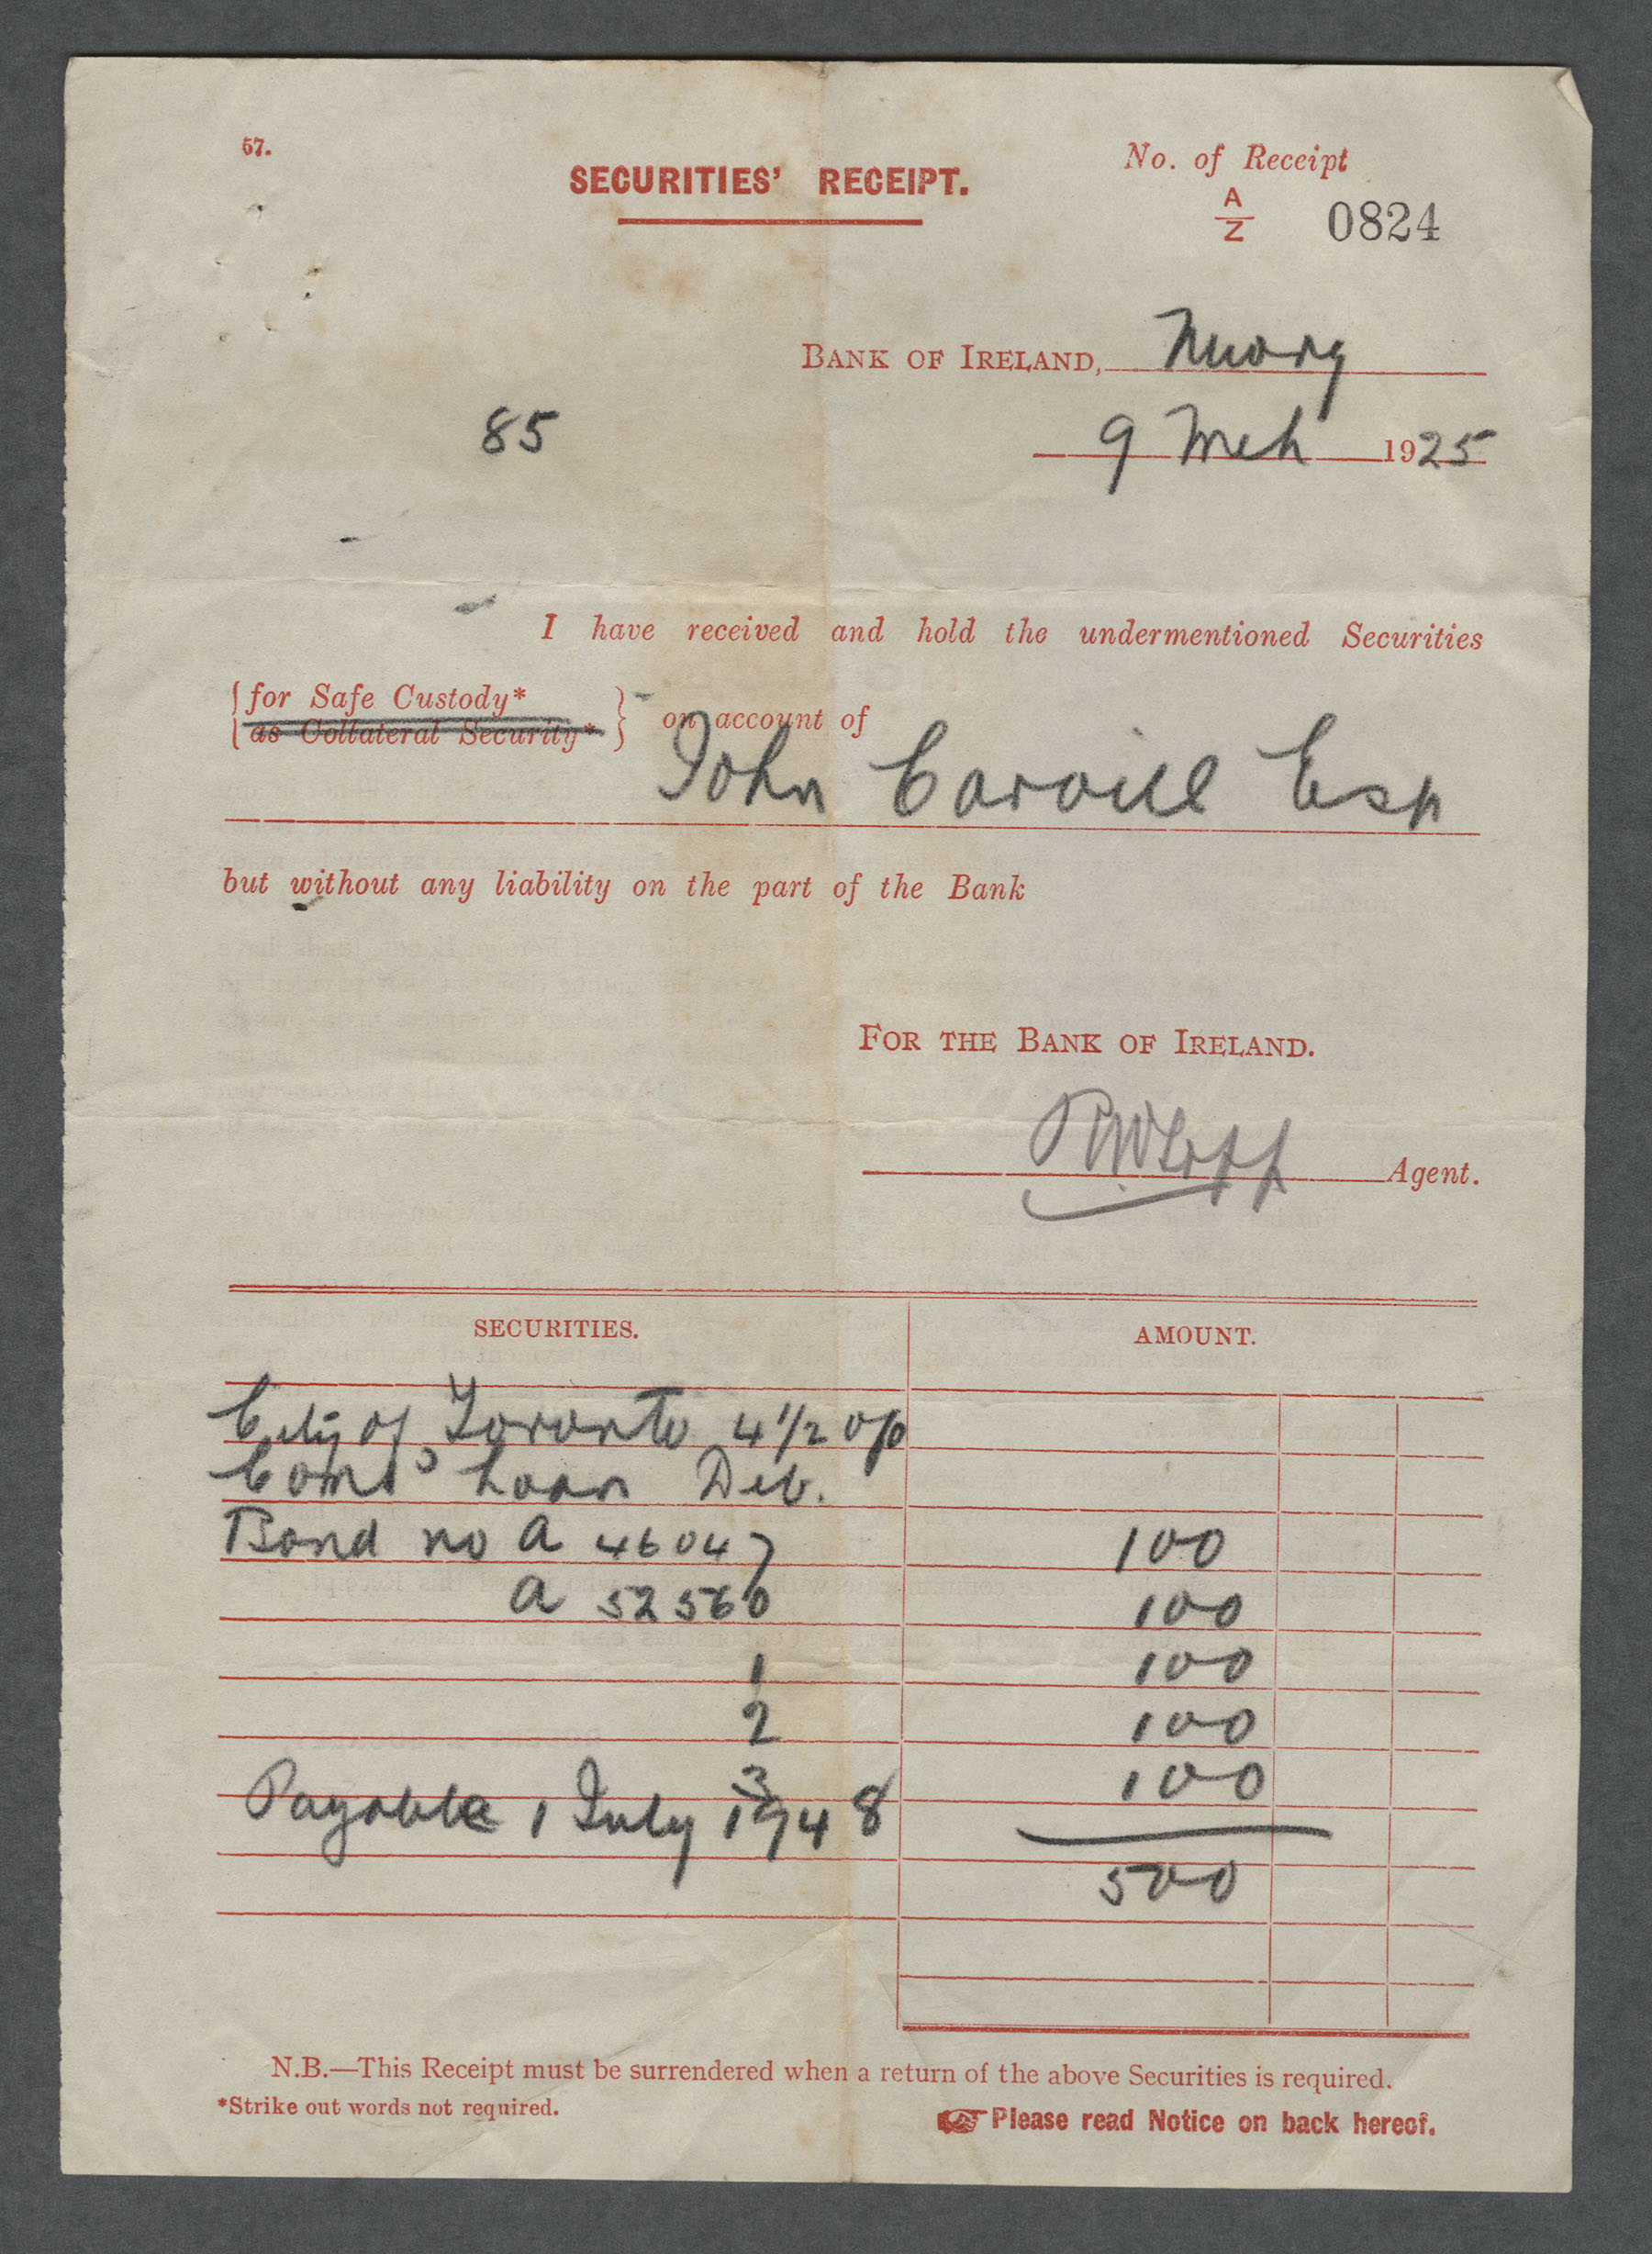 57.
SECURITIES' RECEIPT.
No. of Receipt
A/Z 0824
BANK OF IRELAND, Newry
85
9 Mch 1925
I have received and hold the undermentioned Securities
for Safe Custody*
as Collateral Security*
on account of
John Carvill Esq
but without any liability on the part of the Bank
FOR THE BANK OF IRELAND.
Agent.
SECURITIES. AMOUNT.
City of Toronto 4 1/2 o/o
Loan Deb.
Bond no A 46047 100
A 52560 100
1 100
2 100
3 100
Payable 1 July 1948
500
N.B.—This Receipt must be surrendered when a return of the above Securities is required.
*Strike out words not required.
Please read Notice on back hereof.